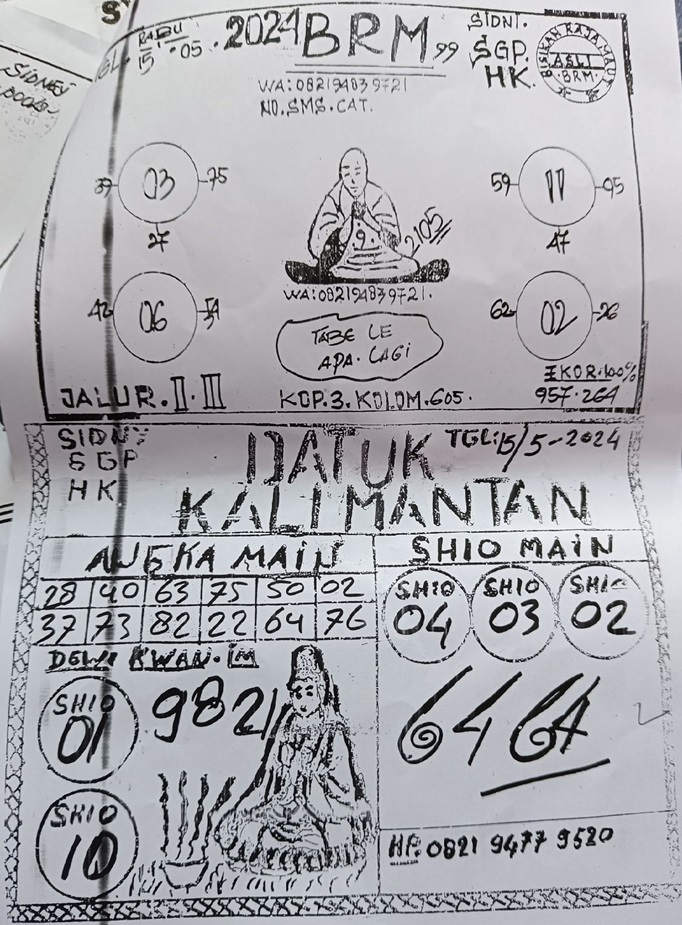 S
SIDNEY
TGL. RABU 15 · 05 · 2024 BRM 99
SIDNI.
SGP.
HK.
BISIKAN RAJA MAUT
ASLI
BRM
WA:082194839721
NO.SMS.CAT.
39 03 75
27
59 11 95
47
9.
2105
42 06 54
62 02 26
WA:082194839721.
TABE LE
APA.LAGI
EKOR.100%
957.264
JALUR.II.III
KOP.3.KOLOM.605.
SIDNY
SGP
HK
DATUK
KALIMANTAN
TGL:15/5-2024
ANGKA MAIN
28 40 63 75 50 02
37 73 82 22 64 76
SHIO MAIN
SHIO 04
SHIO 03
SHIO 02
DEWI KWAN.IM
SHIO
01
9821
SHIO
10
6464
HP: 0821 9477 9520